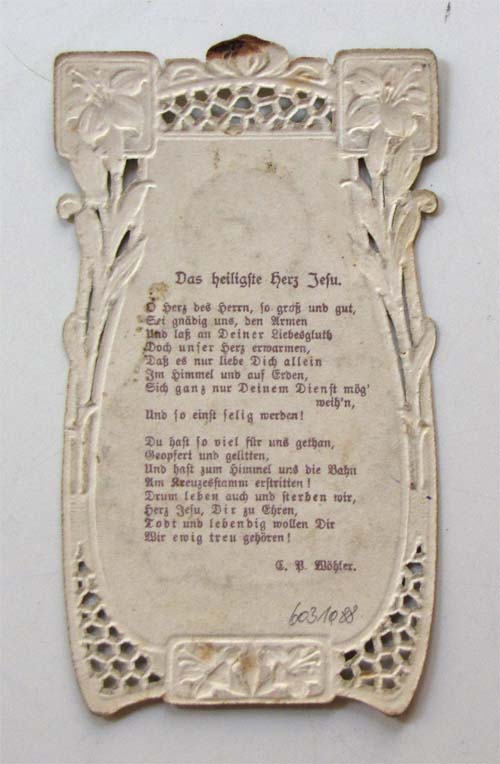 Das heiligste Herz Jesu.
O Herz des Herrn, so groß und gut,
Sei gnädig uns, den Armen
Und laß an Deiner Liebesgluth
Doch unser Herz erwarmen,
Daß es nur liebe Dich allein
Im Himmel und auf Erden,
Sich ganz nur Deinem Dienst mög'
weih'n,
Und so einst selig werden!
Du hast so viel für uns gethan,
Geopfert und gelitten,
Und hast zum Himmel uns die Bahn
Am Kreuzesstamm erstritten!
Drum leben auch und sterben wir,
Herz Jesu, Dir zu Ehren,
Todt und lebendig wollen Dir
Wir ewig treu gehören!
C. P. Wöhler.
6031088